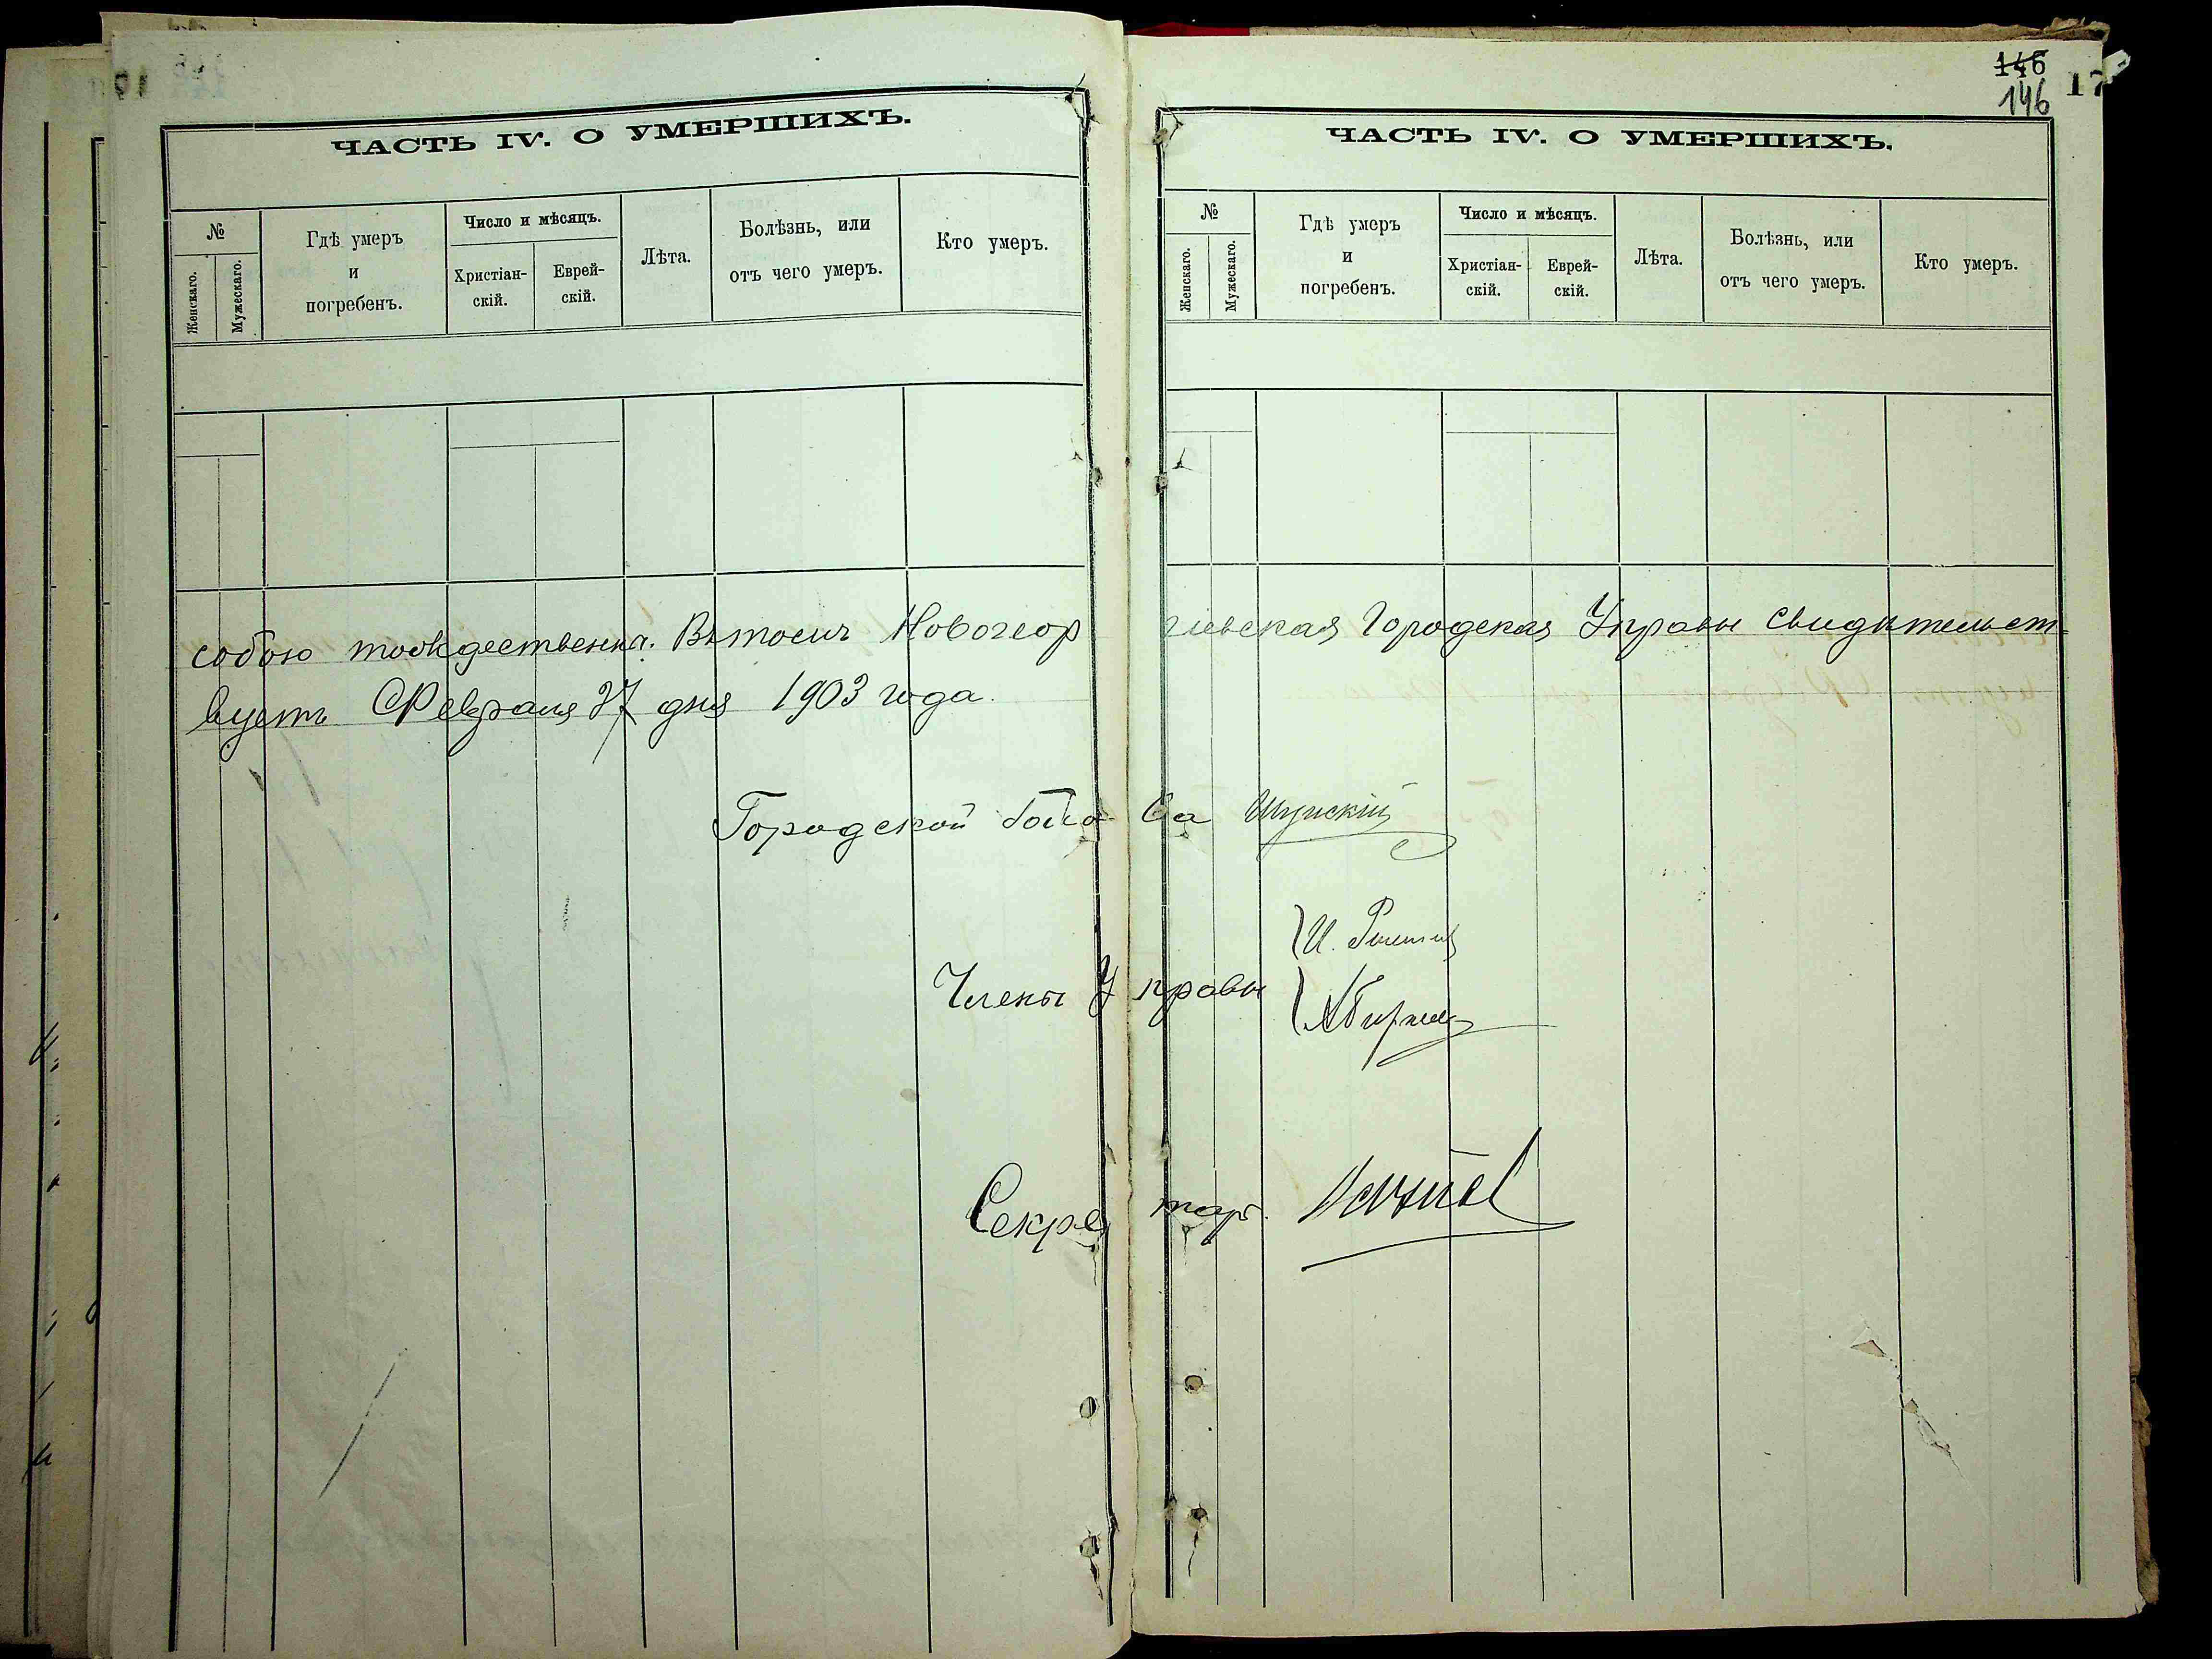 146
146 17
ЧАСТЬ IV. О УМЕРШИХЪ.
№
Женскаго.
Мужескаго.
Гдѣ умеръ
и
погребенъ.
Число и мѣсяцъ.
Христіан-
скій.
Еврей-
скій.
Лѣта.
Болѣзнь, или
отъ чего умеръ.
Кто умеръ.
ЧАСТЬ IV. О УМЕРШИХЪ.
№
Женскаго.
Мужескаго.
Гдѣ умеръ
и
погребенъ.
Число и мѣсяцъ.
Христіан-
скій.
Еврей-
скій.
Лѣта.
Болѣзнь, или
отъ чего умеръ.
Кто умеръ.
собою тождественна. Въ томъ Новогеор гіевская Городская Управа свидѣтельст-
вуетъ Февраля 27 дня 1903 года.
Городской Голо ва
Члены У правы
И.
Секре тарь